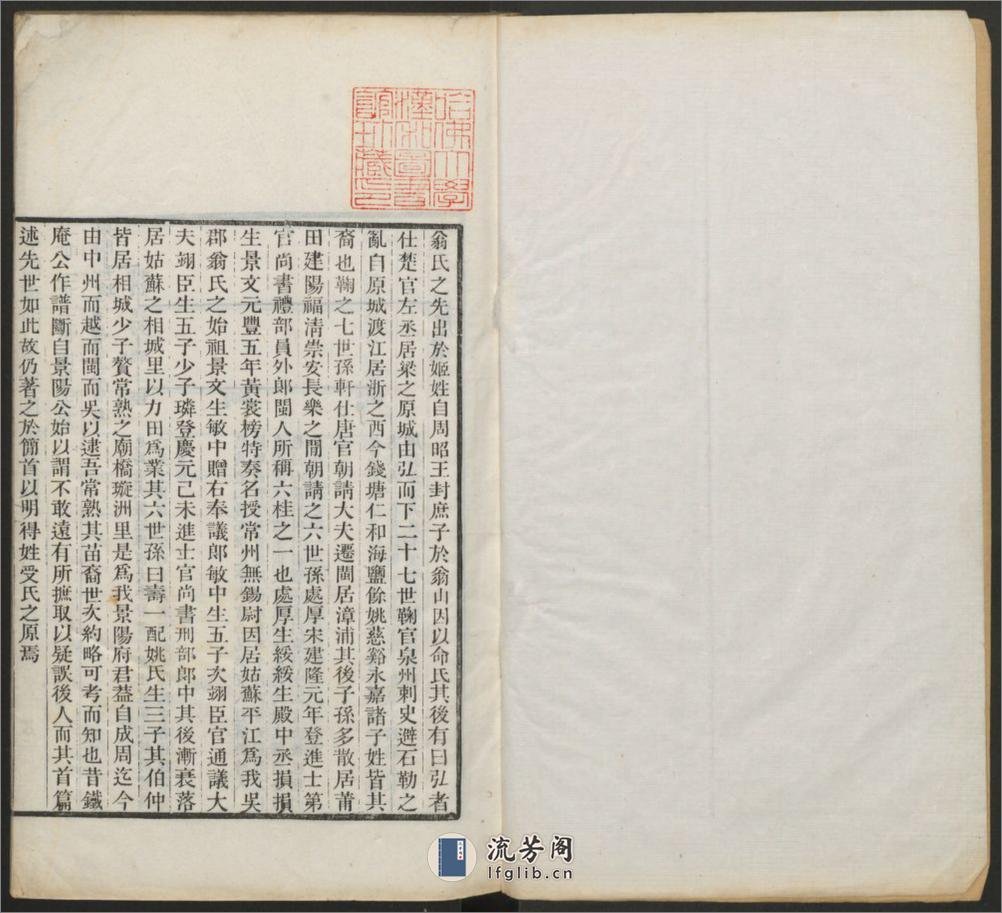 哈佛大學
漢和圖書
館珍藏印
翁氏之先出於姬姓自周昭王封庶子於翁山因以命氏其後有曰弘者
仕楚官左丞居梁之原城由弘而下二十七世鞠官泉州刺史避石勒之
亂自原城渡江居浙之西今錢塘仁和海鹽餘姚慈谿永嘉諸子姓皆其
裔也鞠之七世孫軒仕唐官朝請大夫遷閩居漳浦其後子孫多散居莆
田建陽福清崇安長樂之閒朝請之六世孫處厚宋建隆元年登進士第
官尚書禮部員外郎閩人所稱六桂之一也處厚生綬綬生殿中丞損損
生景文元豐五年黃裳榜特奏名授常州無錫尉因居姑蘇平江爲我吳
郡翁氏之始祖景文生敏中贈右奉議郎敏中生五子次翊臣官通議大
夫翊臣生五子少子璘登慶元己未進士官尚書刑部郎中其後漸衰落
居姑蘇之相城里以力田爲業其六世孫曰壽一配姚氏生三子其伯仲
皆居相城少子贅常熟之廟橋璇洲里是爲我景陽府君葢自成周迄今
由中州而越而閩而吳以逮吾常熟其苗裔世次約略可考而知也昔鐵
庵公作譜斷自景陽公始以謂不敢遠有所摭取以疑誤後人而其首篇
述先世如此故仍著之於簡首以明得姓受氏之原焉
流芳阁
lfglib.cn